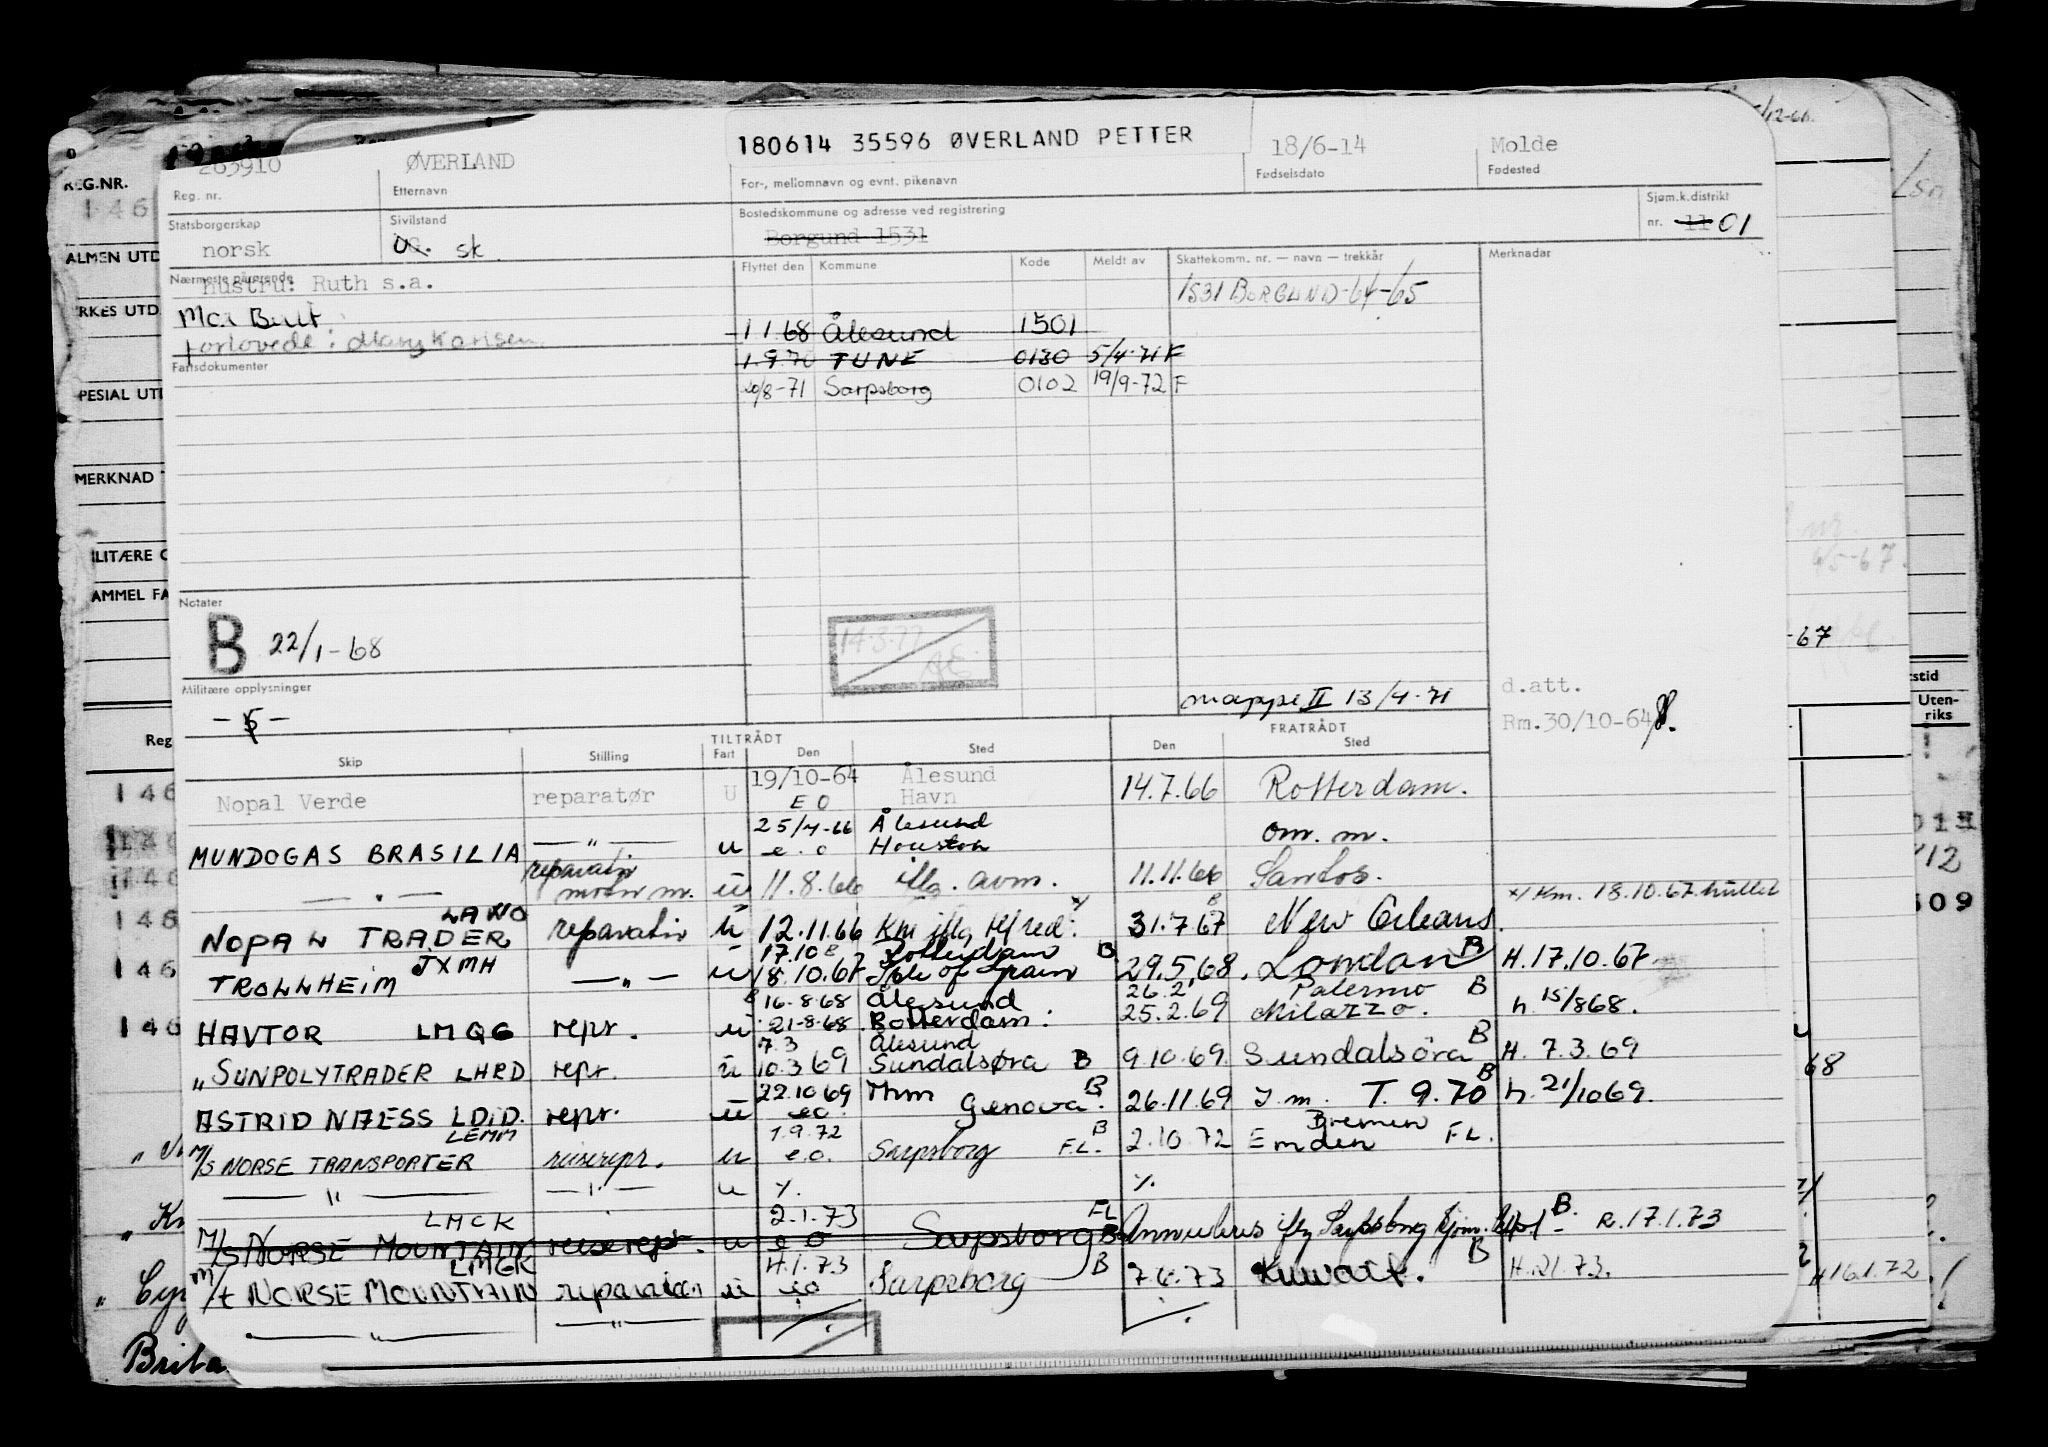 180614 35596 ØVERLAND PETTER
263910 ØVERLAND 18/6-14 Molde
Reg. nr. Etternavn For-, mellomnavn og evnt. pikenavn Fødselsdato Fødested
Statsborgerskap Sivilstand Bostedskommune og adresse ved registrering Sjøm.k.distrikt
norsk sk. Borgund 1531 nr. 11 01
Nærmeste pårørende Flyttet den Kommune Kode Meldt av Skattekomm. nr. — navn — trekkår Merknader
hustru: Ruth s.a. 1531 BORGUND-64-65
forlovede: Mary Karlsen
1.1.68 Ålesund 1501
Fartsdokumenter 1.9.70 TUNE 0130 5/4-71 F
20/8-71 Sarpsborg 0102 19/9-72 F
Notater
B 22/1-68
14.3.77
Militære opplysninger
mappe II 13/4-71
d.att.
Rm.30/10-64
TILTRÅDT FRATRÅDT
Skip Stilling Fart Den Sted Den Sted
19/10-64 Ålesund
Nopal Verde reparatør U E O Havn 14.7.66 Rotterdam.
25/4-66 Ålesund
MUNDOGAS BRASILIA — " — u e.o Houston om. m.
— " — u 11.8.66 iflg. avm. 11.11.66 Santos.
x/ Km. 18.10.67
LANO
NOPAL TRADER reparatør u 12.11.66 Km iflg 31.7.67 New Orleans.
17.10 Rotterdam B
TROLLHEIM JXMH — " — u 18.10.67 29.5.68. London B H.17.10.67
16.8.68 Ålesund 26.2 Palermo B
HAVTOR LMQG repr. u 21-8-68 Rotterdam. 25.2.69 Milazzo. h. 15/868.
7.3 Ålesund
" SUNPOLYTRADER LHRD repr. u 10.3 69 Sundalsøra B 9.10.69 Sundalsöra B H. 7.3.69
22.10 69
ASTRID NAESS LDID. repr. u eo. Genova B. 26.11.69 T. 9.70 B h. 21/1069.
LEMM 1.9.72 B Bremen
M/S NORSE TRANSPORTER reiserepr. u e.o. Sarpsborg F.L. 2.10.72 Emden F.L.
— " — — " — u %. %.
LMCK 2.1.73 FL
M/S NORSE MOUNTAIN reiserepr. u e o Sarpsborg B Annulleres iflg Sarpsborg B. R.17.1.73
LMGK 4.1.73
M/t NORSE MOUNTAIN reparatør u eo Sarpsborg B 7.4.73 Kuwait. B H.21.73.
— " — — " —
REG.NR.
146
ALMEN UTD
RKES UTD
PESIAL UTD
MERKNAD
ILITÆRE
AMMEL FA
Reg
146
146
146
146
146
Brita
-67
stid
Uten-
riks
012
412
509
68
16.1.72